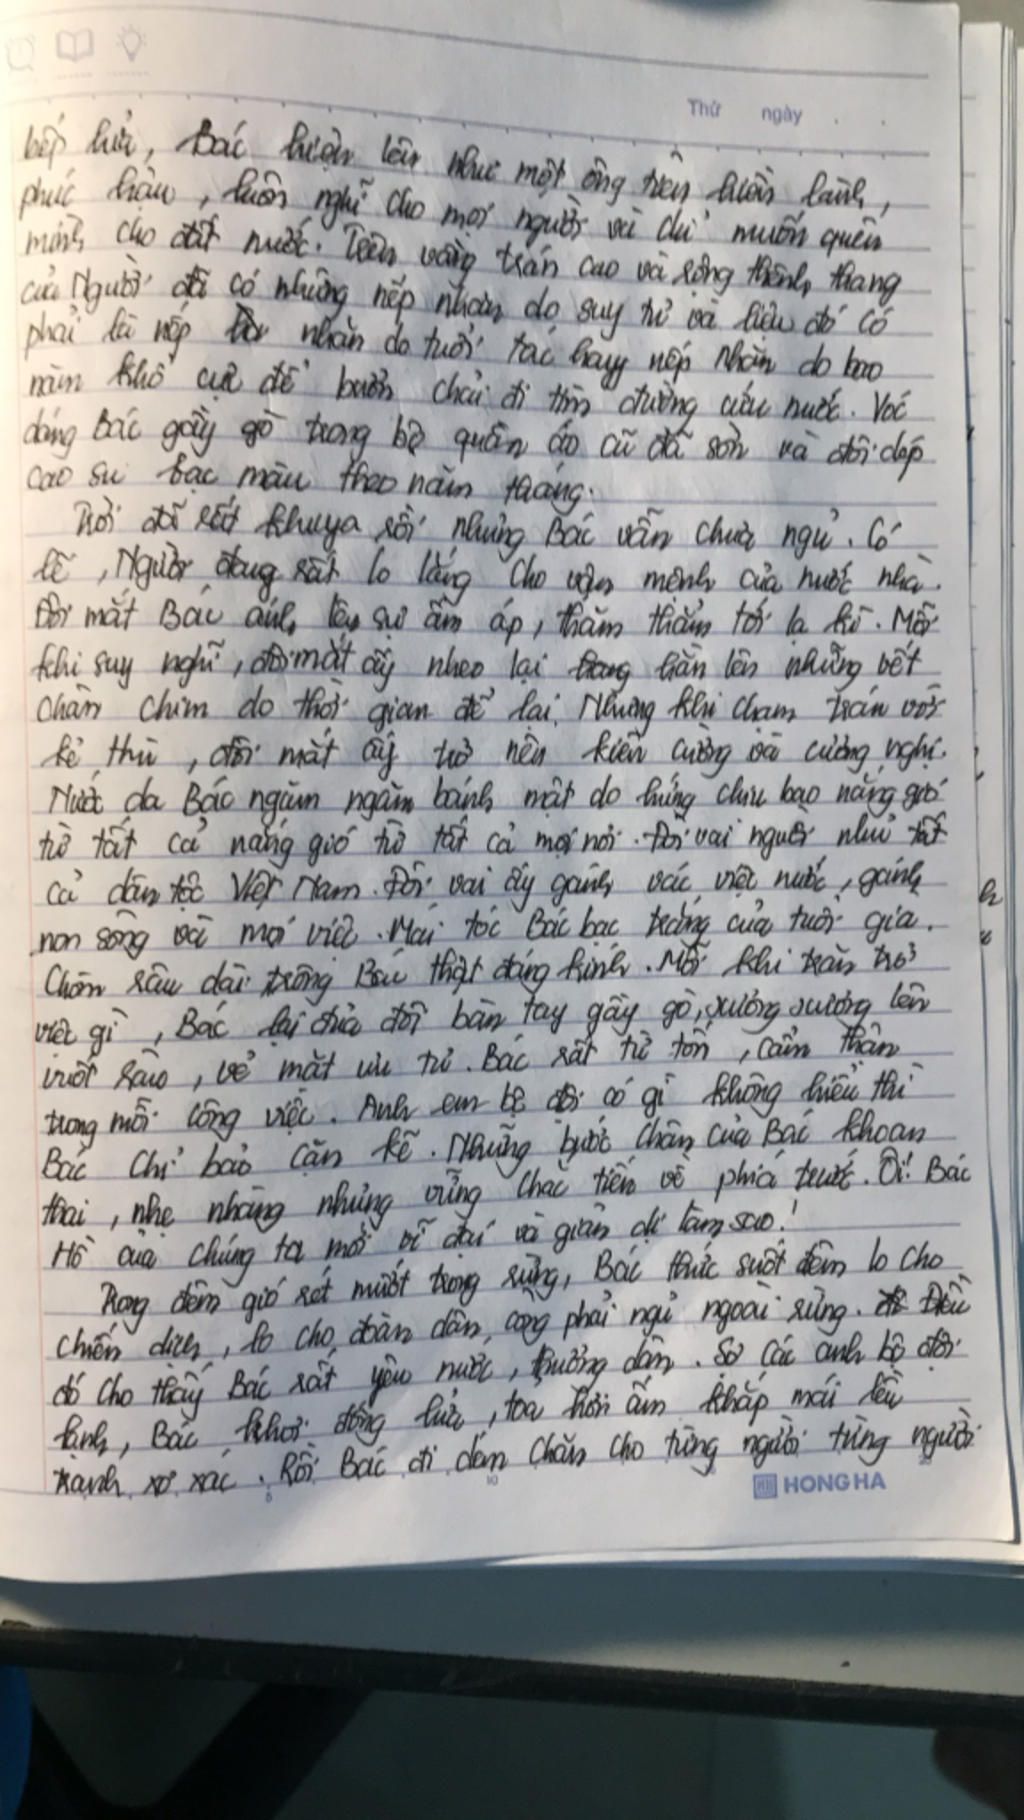 Thứ ngày
bếp lửa, Bác hiện lên như một ông tiên hiền lành,
phúc hậu, luôn nghĩ cho mọi người và chỉ muốn quên
mình cho đất nước. Trên vầng trán cao và rộng thênh thang
của Người đã có những nếp nhăn do suy tư và liệu đó có
phải là nếp nhăn do tuổi tác hay nếp nhăn do bao
năm khổ cực để buôn chải đi tìm đường cứu nước. Vóc
dáng Bác gầy gò trong bộ quần áo cũ đã sờn và đôi dép
cao su bạc màu theo năm tháng.
Trời đã rất khuya rồi nhưng Bác vẫn chưa ngủ. Có
lẽ, Người đang rất lo lắng cho vận mệnh của nước nhà.
Đôi mắt Bác ánh lên sự ấm áp, thăm thẳm tới lạ kì. Mỗi
khi suy nghĩ, đôi mắt ấy nheo lại hằn lên những vết
chân chim do thời gian để lại. Nhưng khi chạm trán với
kẻ thù, đôi mắt ấy trở nên kiên cường và cương nghị.
Nước da Bác ngăm ngăm bánh mật do hứng chịu bao nắng gió
từ tất cả nắng gió từ tất cả mọi nơi. Đôi vai người như tất
cả dân tộc Việt Nam. Đôi vai ấy gánh vác việc nước, gánh
non sông và mọi việc. Mái tóc Bác bạc trắng của tuổi già.
Chòm râu dài trông Bác thật đáng kính. Mỗi khi trăn trở
việc gì, Bác lại đưa đôi bàn tay gầy gò, xương xương lên
vuốt râu, vẻ mặt ưu tư. Bác rất từ tốn, cẩn thận
trong mỗi công việc. Anh em bộ đội có gì không hiểu thì
Bác chỉ bảo cặn kẽ. Những bước chân của Bác khoan
thai, nhẹ nhàng nhưng vững chắc tiến về phía trước. Ôi! Bác
Hồ của chúng ta mới vĩ đại và giản dị làm sao!
Trong đêm gió rét mướt trong rừng, Bác thức suốt đêm lo cho
chiến dịch, lo cho đoàn dân công phải ngủ ngoài rừng. Điều
đó cho thấy Bác rất yêu nước, thương dân. Sợ các anh bộ đội
lạnh, Bác khơi đống lửa, tỏa hơi ấm khắp mái lều
tranh xơ xác. Rồi Bác đi dém chăn cho từng người từng người
HONG HA